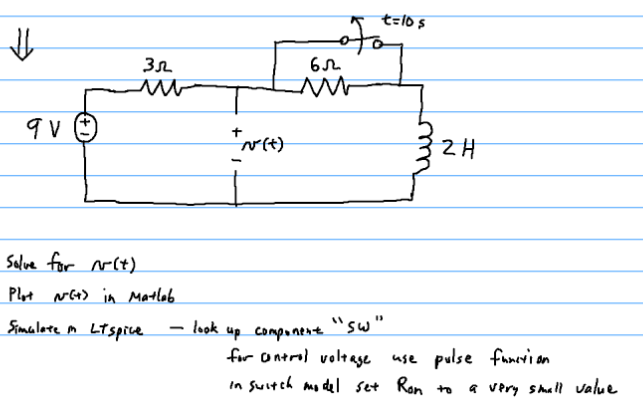 t=10 s
3Ω
6Ω
9 V
+
-
+
v(t)
-
2 H
Solve for v(t)
Plot v(t) in Matlab
Simulate in LTspice - look up component "SW"
for control voltage use pulse function
in switch model set Ron to a very small value